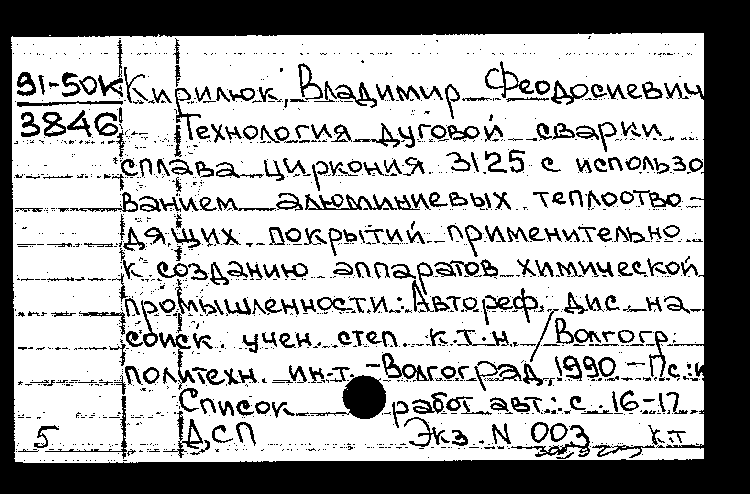 91-50К Кирилюк, Владимир Феодосиевич
3846 Технология дуговой сварки
сплава циркония Э125 с использо
ванием алюминиевых теплоотво-
дящих покрытий применительно
к созданию аппаратов химической
промышленности: Автореф. дис. на
соиск. учен. степ. к.т.н. / Волгогр.
политехн. ин-т. -Волгоград, 1990 -
Список работ авт.: с. 16-17
5 ДСП Экз. N 003 к.т